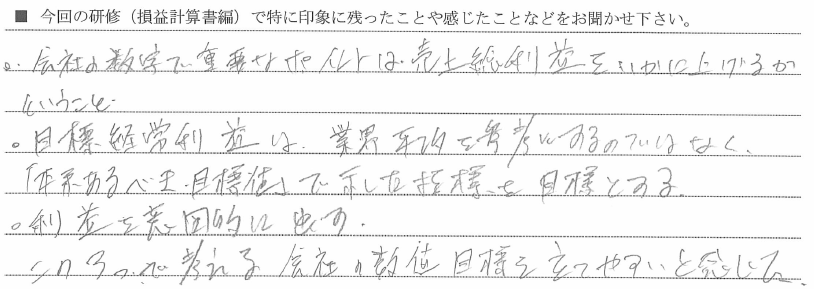 ■ 今回の研修（損益計算書編）で特に印象に残ったことや感じたことなどをお聞かせ下さい。
。会社の数字で重要なポイントは、売上総利益をいかに上げるか
ということ。
。目標経営利益は、業界平均を参考にするのではなく、
「本来あるべき目標値」で示した指標を目標とする。
。利益を意図的に出す。
この3つで考える会社の数値目標を立てやすいと感じた。